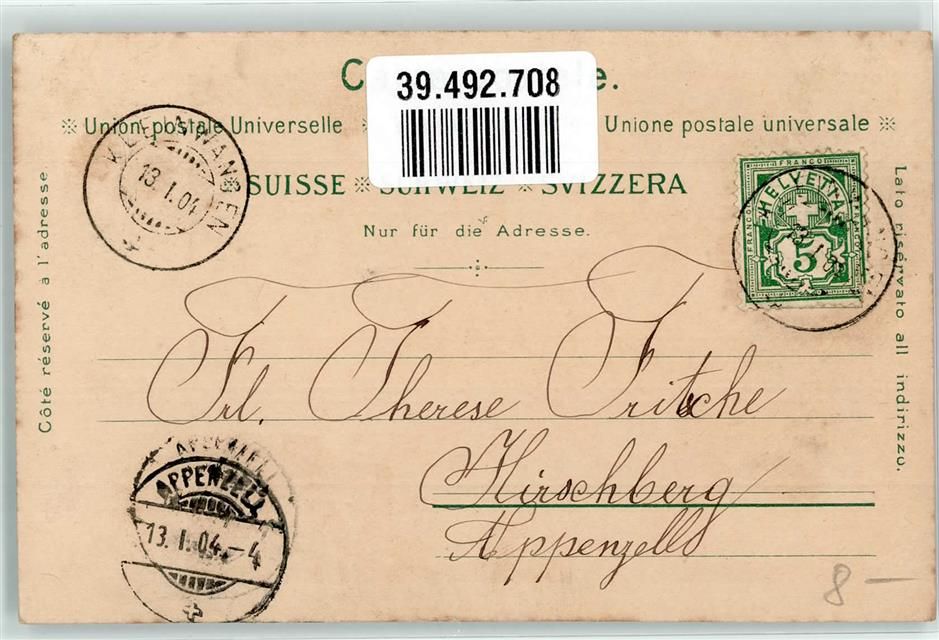 39.492.708
※ Union postale Universelle ※ Unione postale universale ※
SUISSE ※ SCHWEIZ ※ SVIZZERA
Nur für die Adresse.
Côté réservé à l'adresse
Lato riservato all indirizzo.
13.I.04
FRANCO
HELVETIA
FRANCO
FRANCO
5
Frl. Therese Fritsche
Hirschberg
Appenzell
APPENZELL
13.I.04.-4
8 —